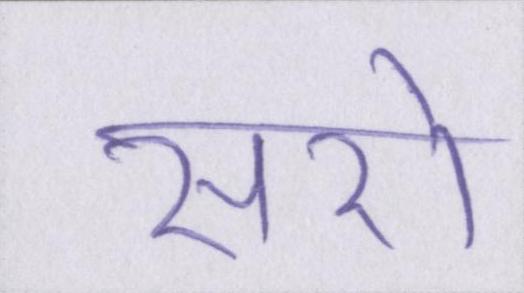 सरो